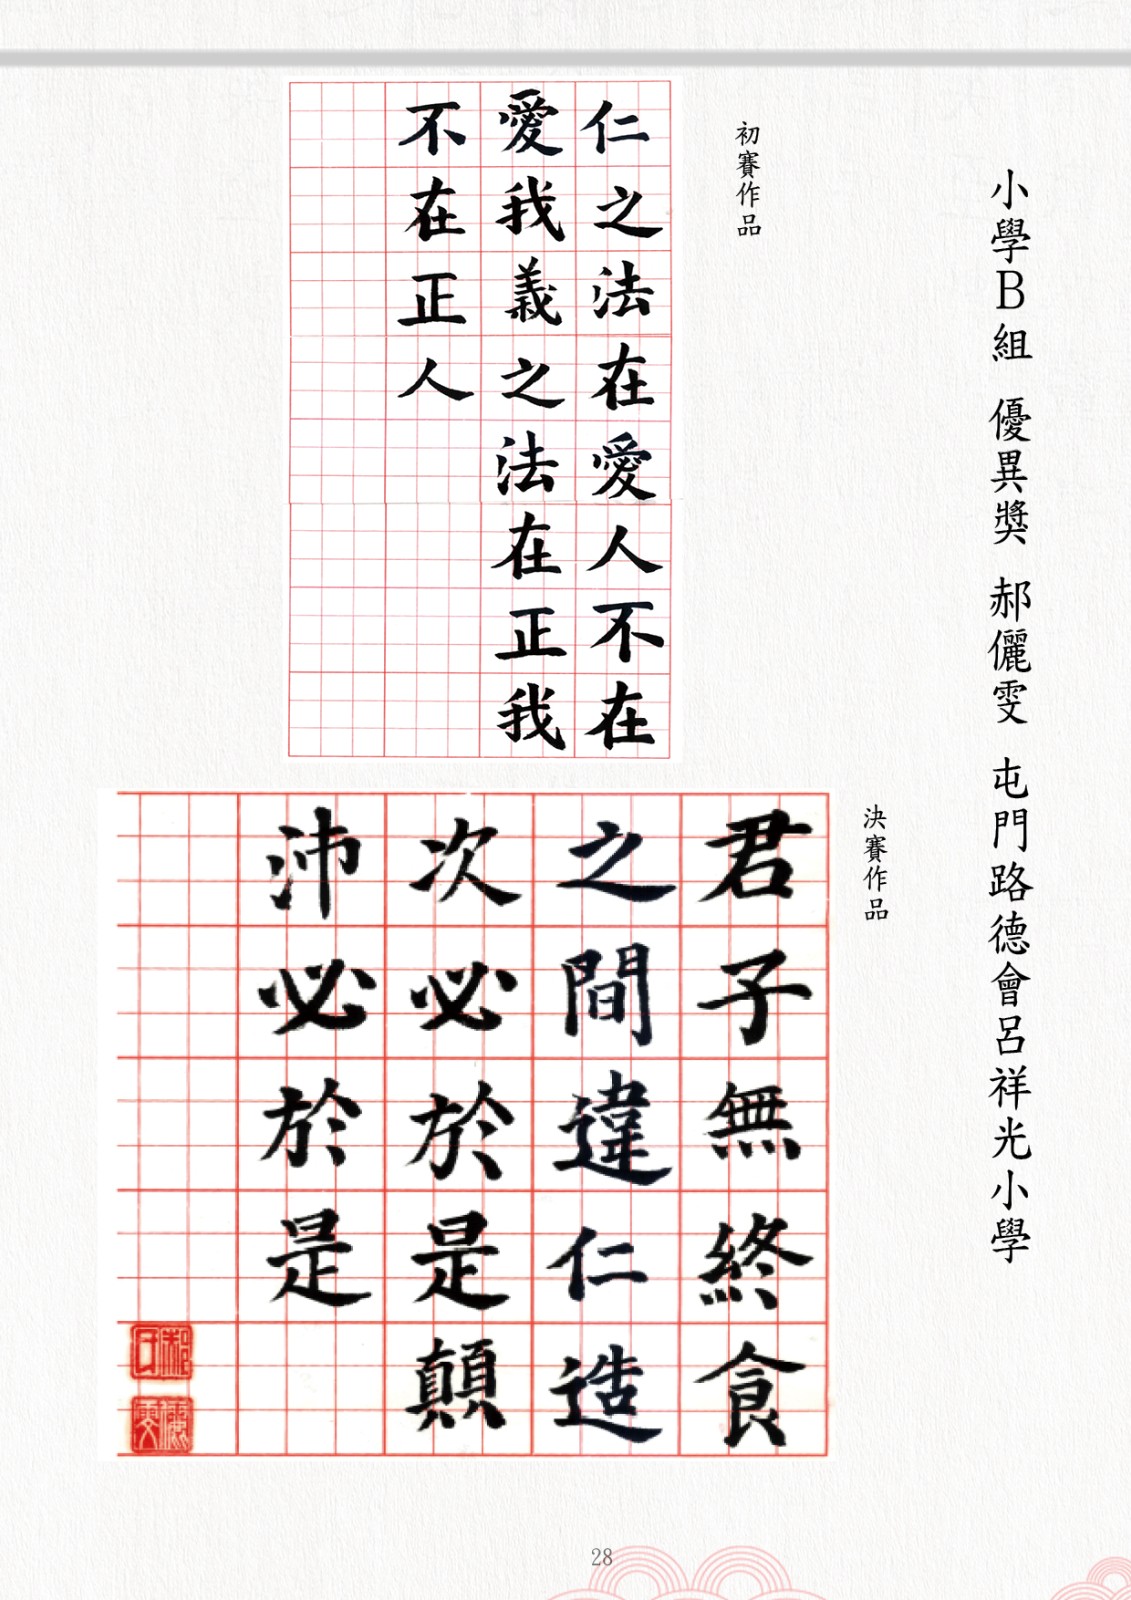 小學B組 優異獎 郝儷雯 屯門路德會呂祥光小學
初賽作品
仁之法在愛人不在
愛我義之法在正我
不在正人
決賽作品
君子無終食
之間違仁造
次必於是顛
沛必於是
28